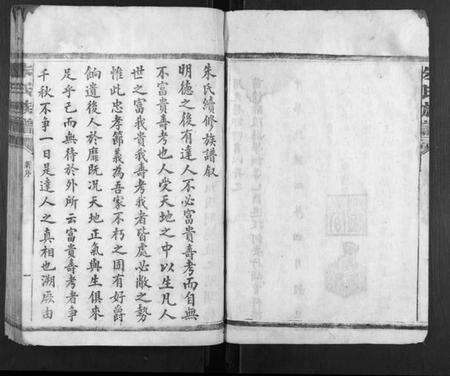 朱氏續修族譜叙
明德之後有達人不必富貴壽考而自無
不富貴壽考也人受天地之中以生凡人
世之富我貴我壽考我者皆處必敝之勢
惟此忠孝節義為吾家不朽之固有好爵
餉遺後人於靡既况天地正氣與生俱來
足乎己而無待於外所云富貴壽考者爭
千秋不爭一日是達人之真相也溯厥由
新序
一
朱氏族譜